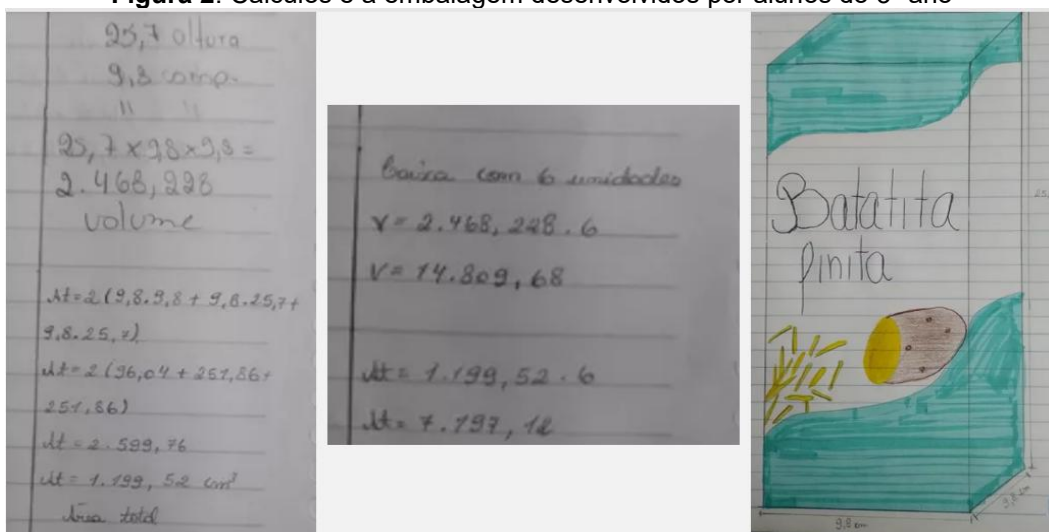 Figura 2. Cálculos e a embalagem desenvolvidos por alunos do 9º ano
25,7 altura
9,8 comp.
" "
25,7 x 9,8 x 9,8 =
2.468,228
volume
At = 2 (9,8 . 9,8 + 9,8 . 25,7 +
9,8 . 25,7)
At = 2 (96,04 + 251,86 +
251,86)
At = 2 . 599,76
At = 1.199,52 cm²
Área total
Caixa com 6 unidades
V = 2.468,228 . 6
V = 14.809,68
At = 1.199,52 . 6
At = 7.197,12
Batatita
Pinita
9,8 cm
9,8 cm